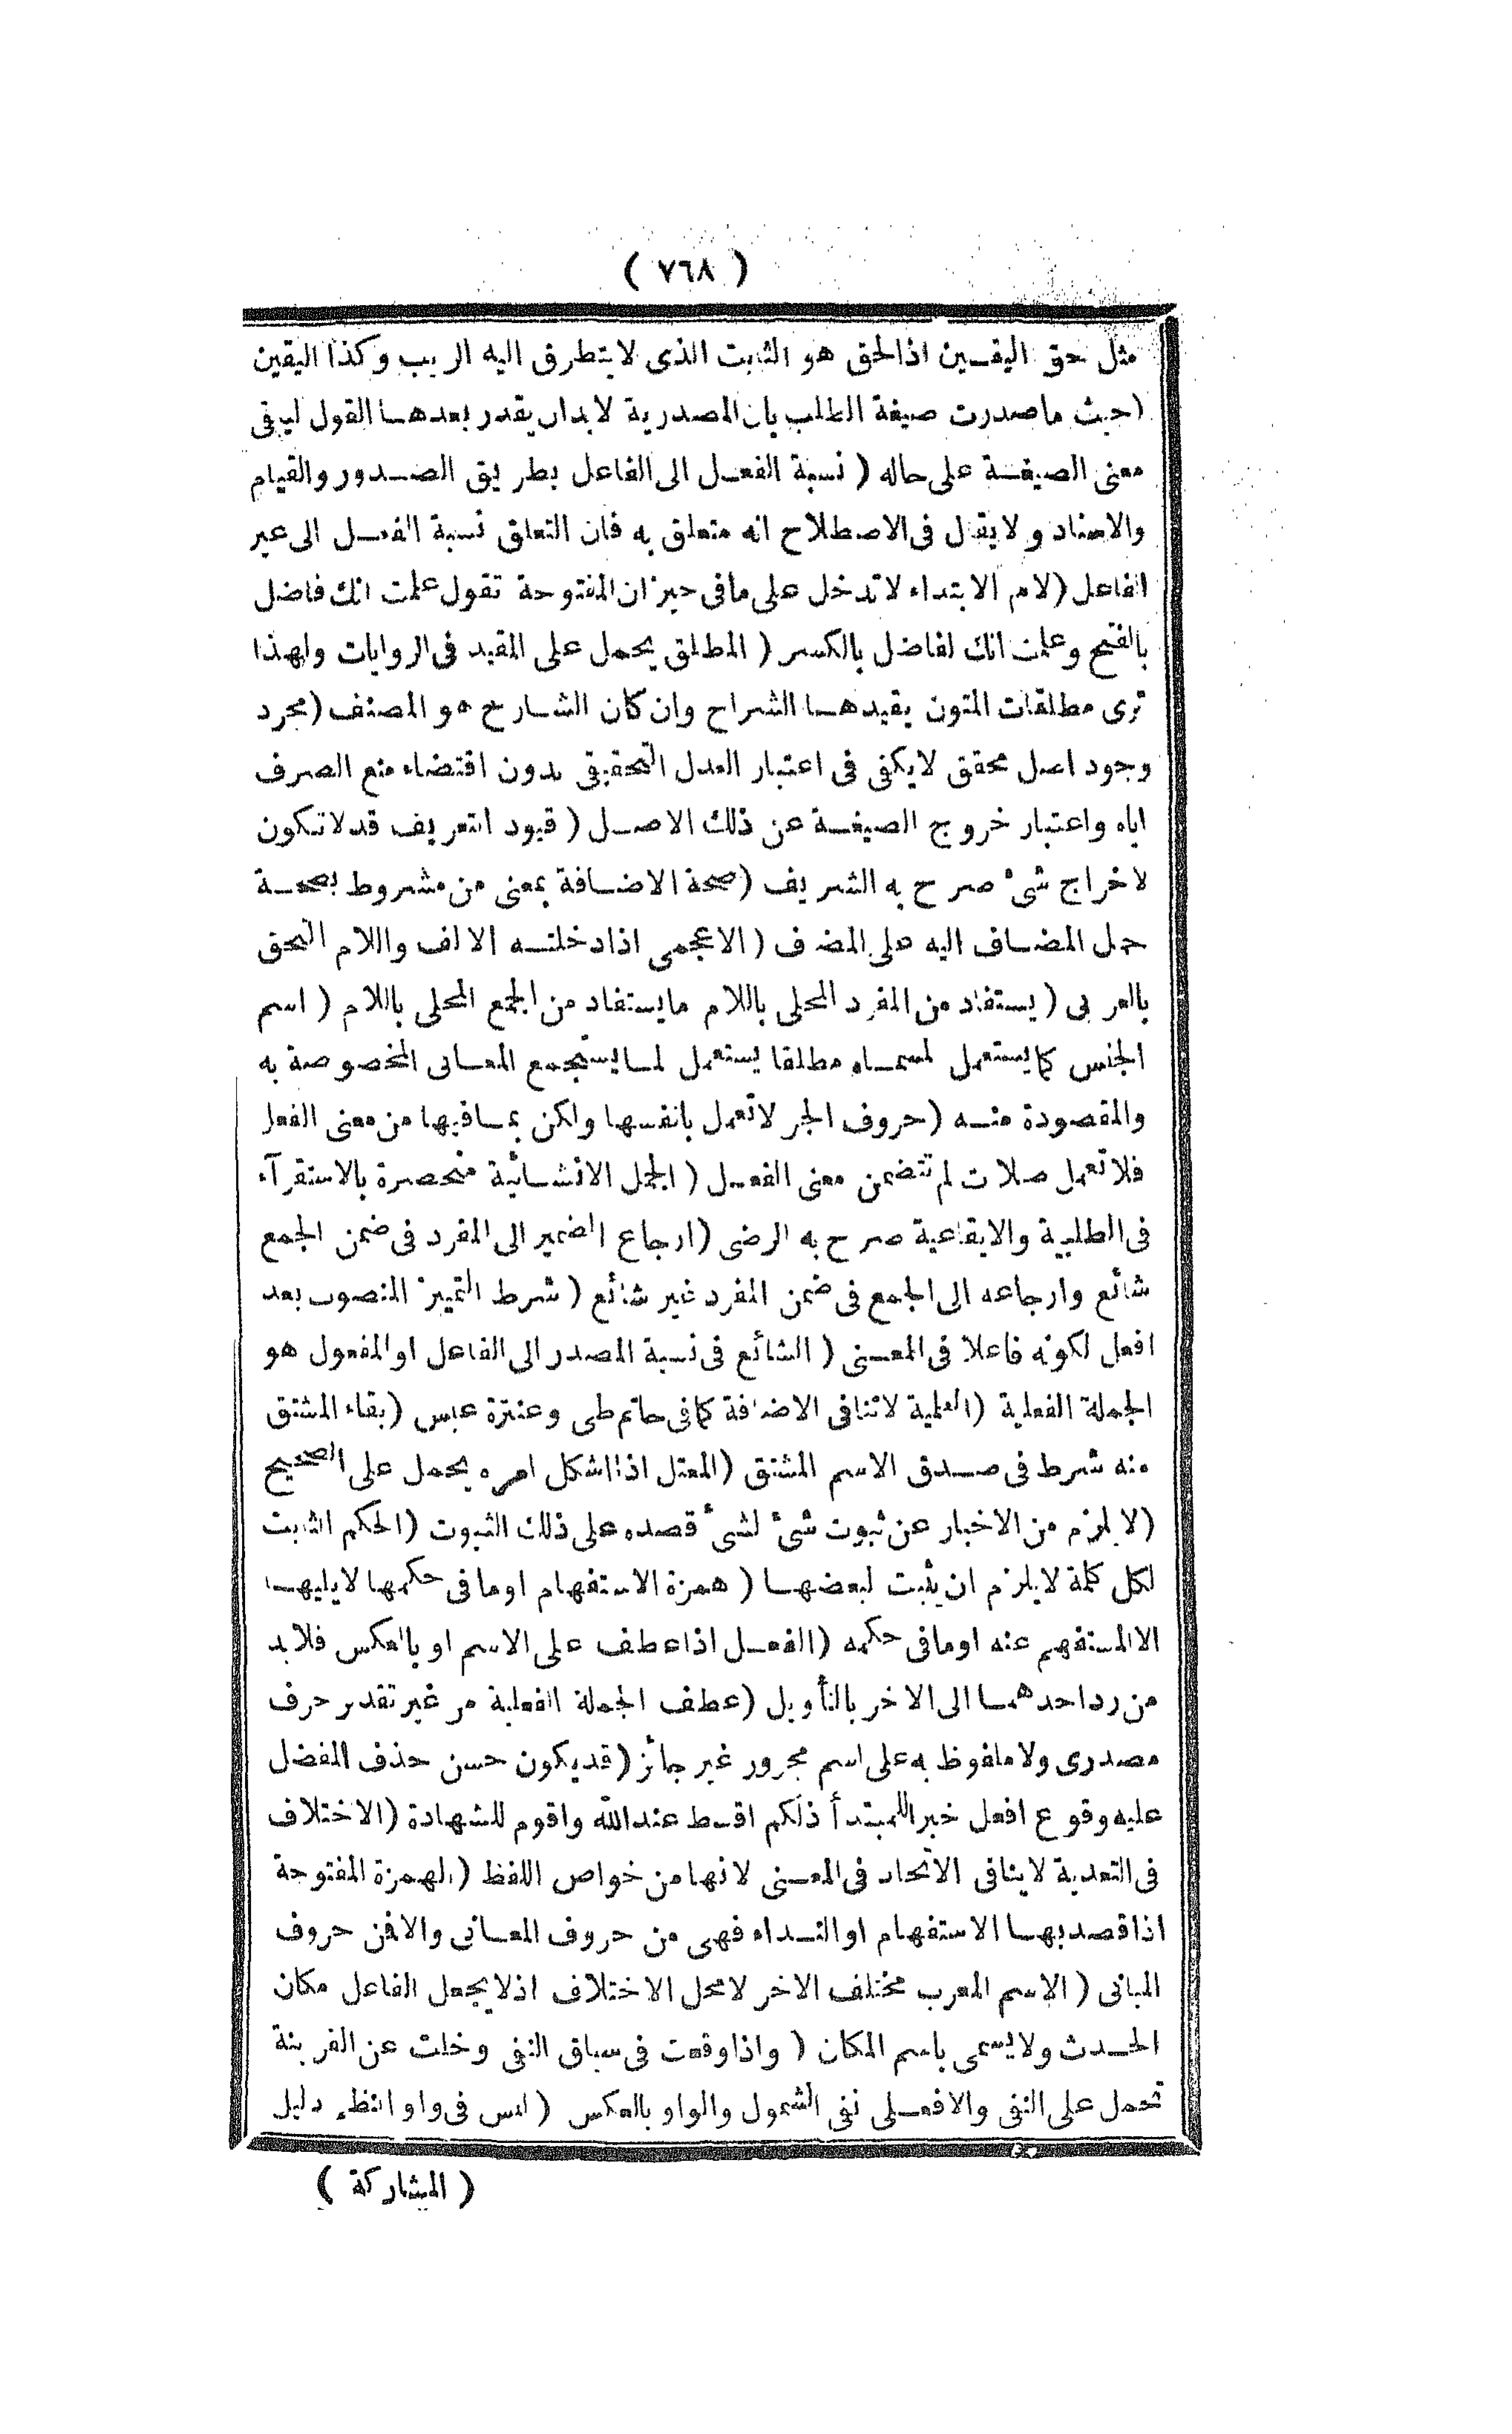 ( ٧٦٨ )
مثل حق اليقين اذالحق هو الثابت الذى لايتطرق اليه الريب وكذا اليقين
(حيث ماصدرت صيغة الطلب بان المصدرية لابدان يقدر بعدها القول ليبقى
معنى الصيغة على حاله ( نسبة الفعل الى الفاعل بطريق الصدور والقيام
والاسناد ولايقال فى الاصطلاح انه متعلق به فان التعلق نسبة الفعل الى غير
الفاعل (لام الابتداء لاتدخل على مافى حيز ان المفتوحة تقول علمت انك فاضل
بالفتح وعلمت انك لفاضل بالكسر ( المطلق يحمل على المقيد فى الروايات ولهذا
ترى مطلقات المتون يقيدها الشراح وان كان الشارح هو المصنف (مجرد
وجود اصل محقق لايكفى فى اعتبار العدل التحقيقى بدون اقتضاء منع الصرف
اياه واعتبار خروج الصيغة عن ذلك الاصل ( قيود التعريف قد لاتكون
لاخراج شئ صرح به الشريف (صحة الاضافة بمعنى من مشروط بصحة
حمل المضاف اليه على المضاف ( الاعجمى اذا دخلته الالف واللام التحق
بالعربى ( يستفاد من المفرد المحلى باللام مايستفاد من الجمع المحلى باللام ( اسم
الجنس كما يستعمل لمسماه مطلقا يستعمل لما يستجمع المعانى المخصوصة به
والمقصودة منه (حروف الجر لاتعمل بانفسها ولكن بما فيها من معنى الفعل
فلا تعمل صلات لم تتضمن معنى الفعل ( الجمل الانشائية منحصرة بالاستقرآء
فى الطلبية والايقاعية صرح به الرضى (ارجاع الضمير الى المفرد فى ضمن الجمع
شائع وارجاعه الى الجمع فى ضمن المفرد غير شائع ( شرط التمييز المنصوب بعد
افعل لكونه فاعلا فى المعنى ( الشائع فى نسبة المصدر الى الفاعل او المفعول هو
الجملة الفعلية (العلمية لاتنافى الاضافة كما فى حاتم طى وعنترة عبس (بقاء المشتق
منه شرط فى صدق الاسم المشتق (المعتل اذا اشكل امره يحمل على الصحيح
(لايلزم من الاخبار عن ثبوت شئ لشئ قصده على ذلك الثبوت (الحكم الثابت
لكل كلمة لايلزم ان يثبت لبعضها ( همزة الاستفهام اومافى حكمها لايليها
الا المستفهم عنه اومافى حكمه (الفعل اذا عطف على الاسم او بالعكس فلابد
من رد احدهما الى الاخر بالتأويل (عطف الجملة الفعلية من غير تقدير حرف
مصدرى ولا ملفوظ به على اسم مجرور غير جائز (قد يكون حسن حذف المفضل
عليه وقوع افعل خبرا للمبتدأ ذلكم اقسط عندالله واقوم للشهادة (الاختلاف
فى التعدية لاينافى الاتحاد فى المعنى لانها من خواص اللفظ (الهمزة المفتوحة
اذا قصد بها الاستفهام او النداء فهى من حروف المعانى والا فمن حروف
المبانى ( الاسم المعرب مختلف الاخر لامحل الاختلاف اذلا يجعل الفاعل مكان
الحدث ولايسمى باسم المكان ( واذا وقعت فى سياق النفى وخلت عن القرينة
تحمل على النفى والا فعلى نفى الشمول والواو بالعكس ( ليس فى واو النظم دليل
( المشاركة )